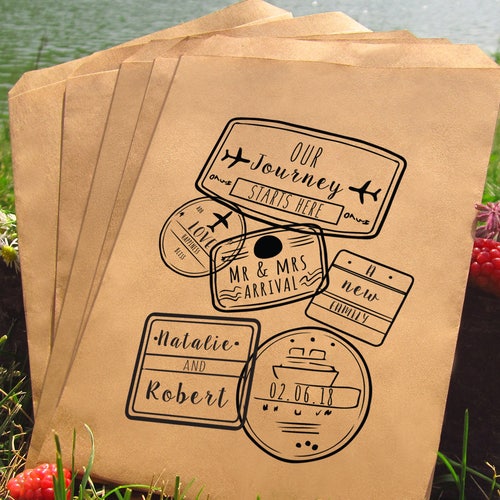 OUR
Journey
STARTS HERE
LOVE
HAPPINESS
BLISS
MR & MRS
ARRIVAL
A
new
FAMILY
Natalie
AND
Robert
02.06.18